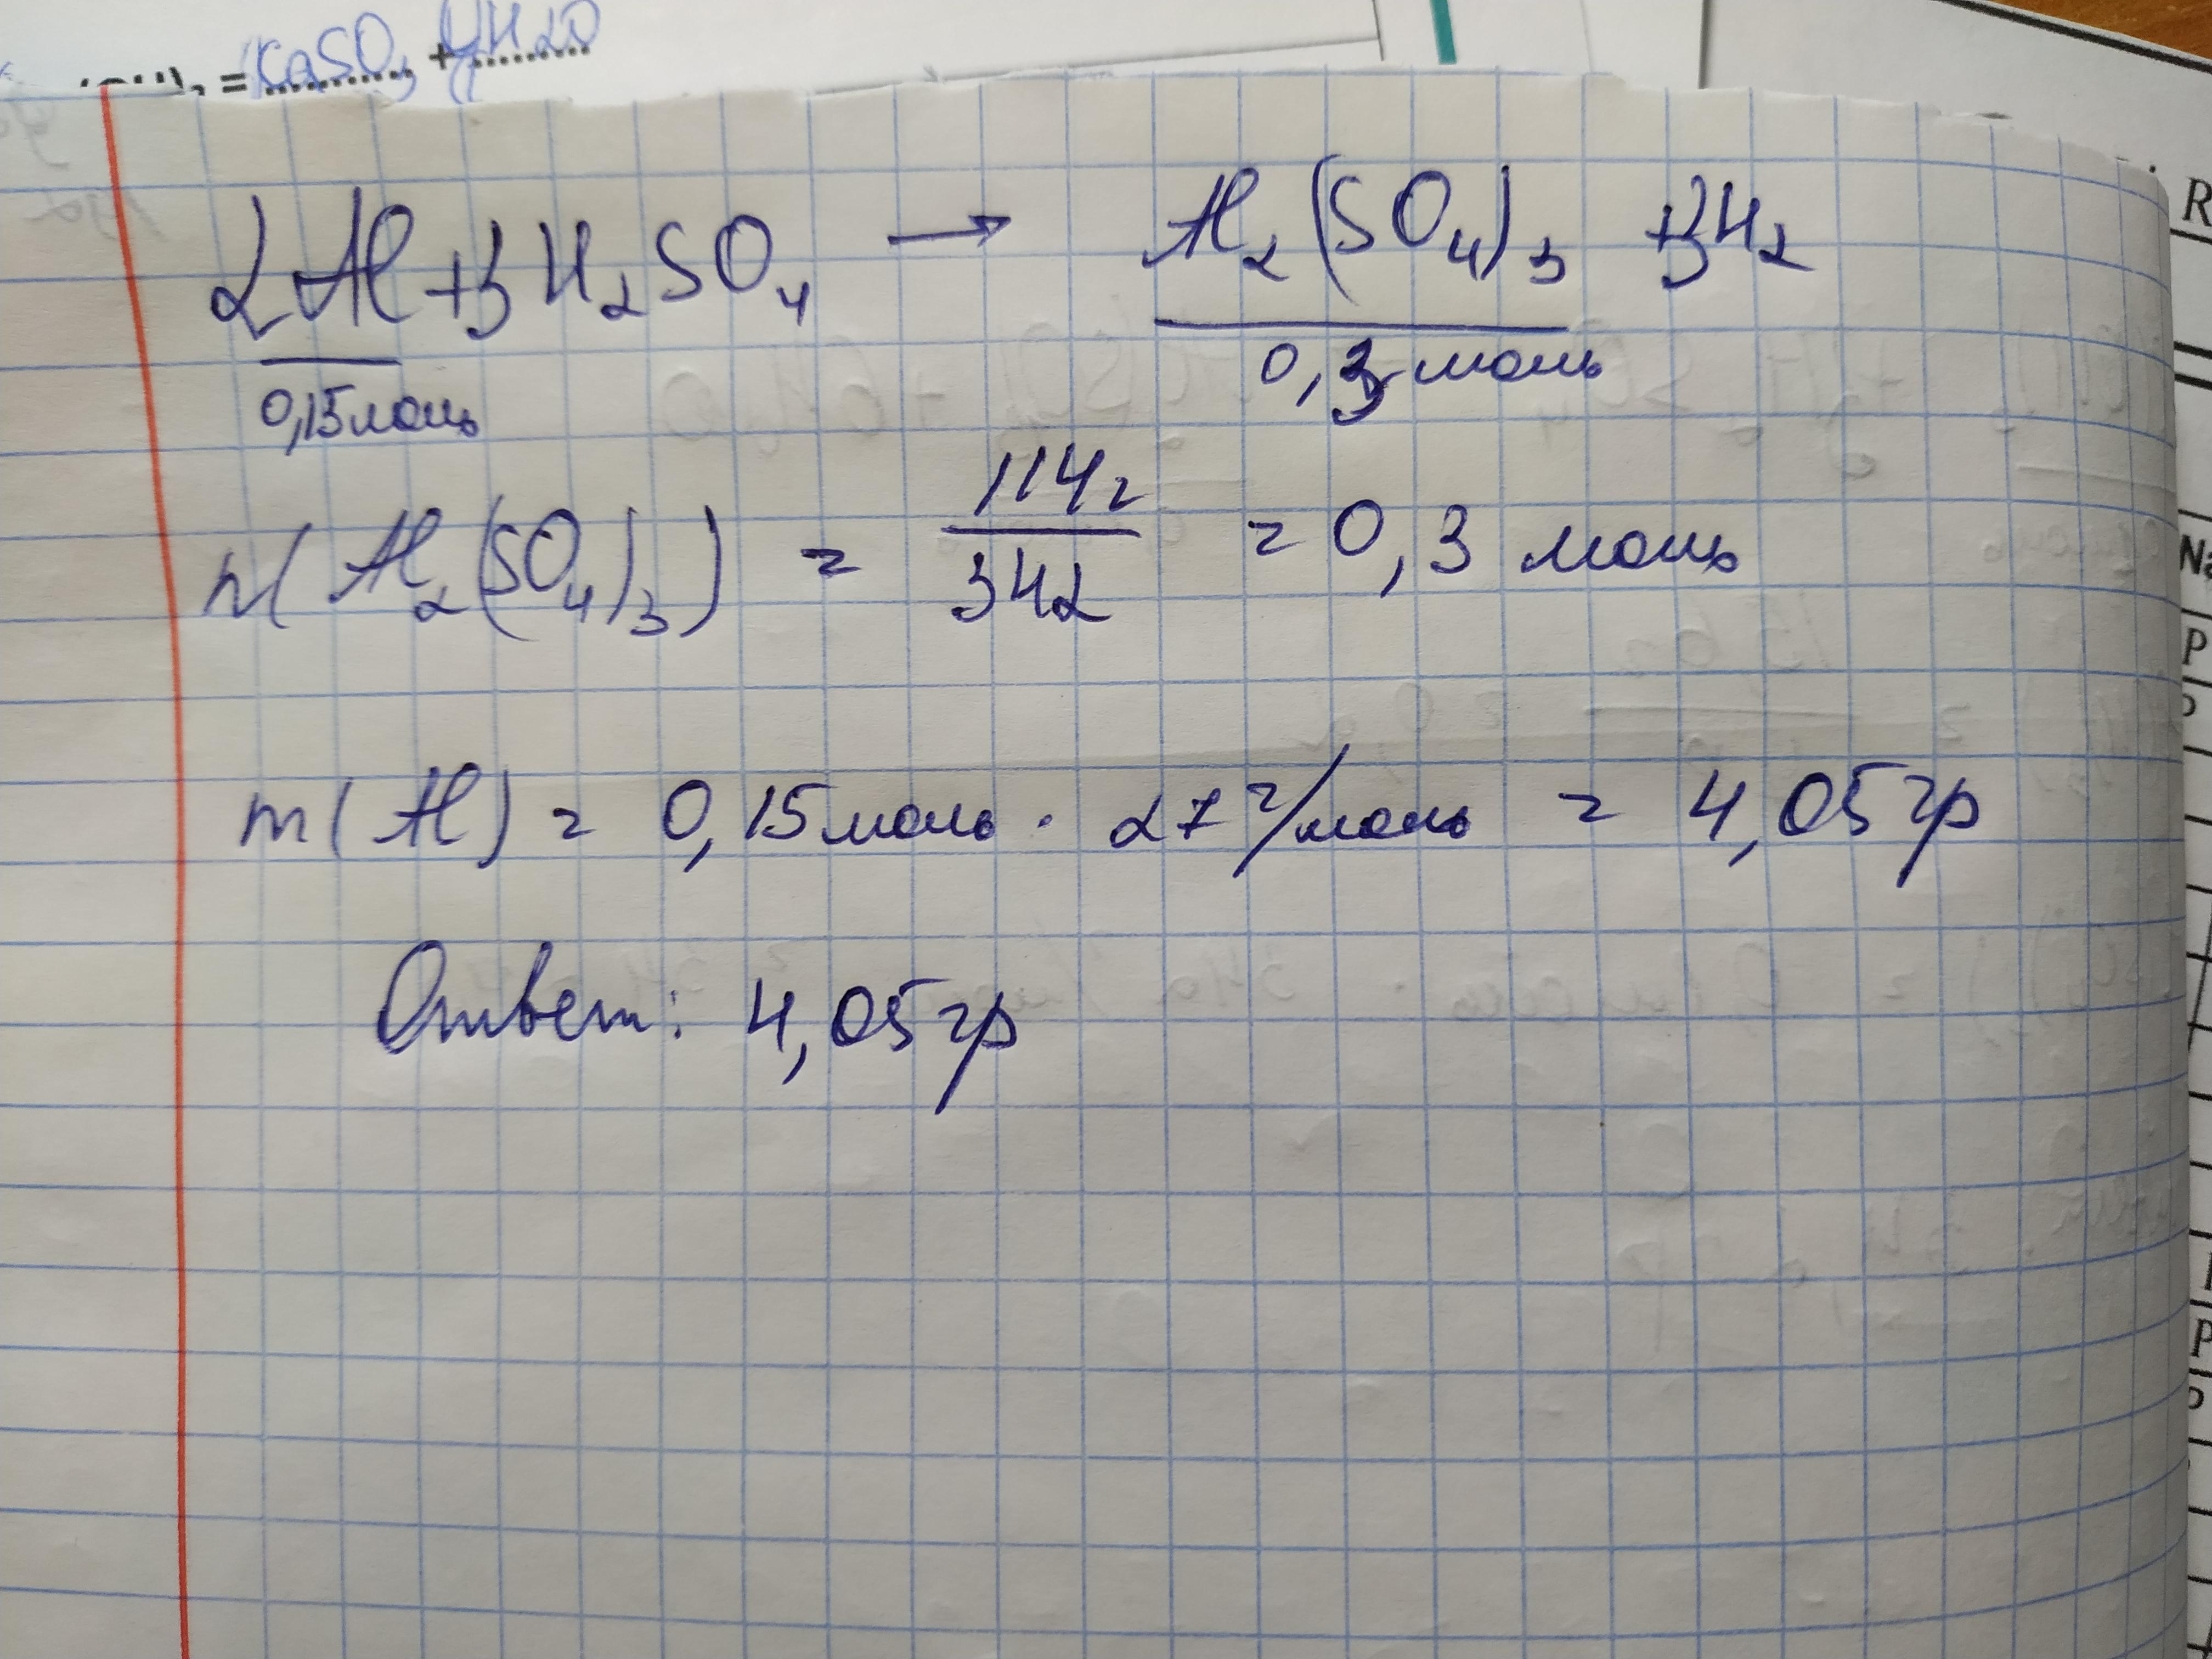 = CaSO₄ + 2H2O
2Al + 3H₂SO₄ → Al₂(SO₄)₃ + 3H₂
0,15моль 0,3 моль
n(Al₂(SO₄)₃) = 114г/342 = 0,3 моль
m(Al) = 0,15моль · 27 г/моль = 4,05гр
Ответ: 4,05гр
R
Na
P
P